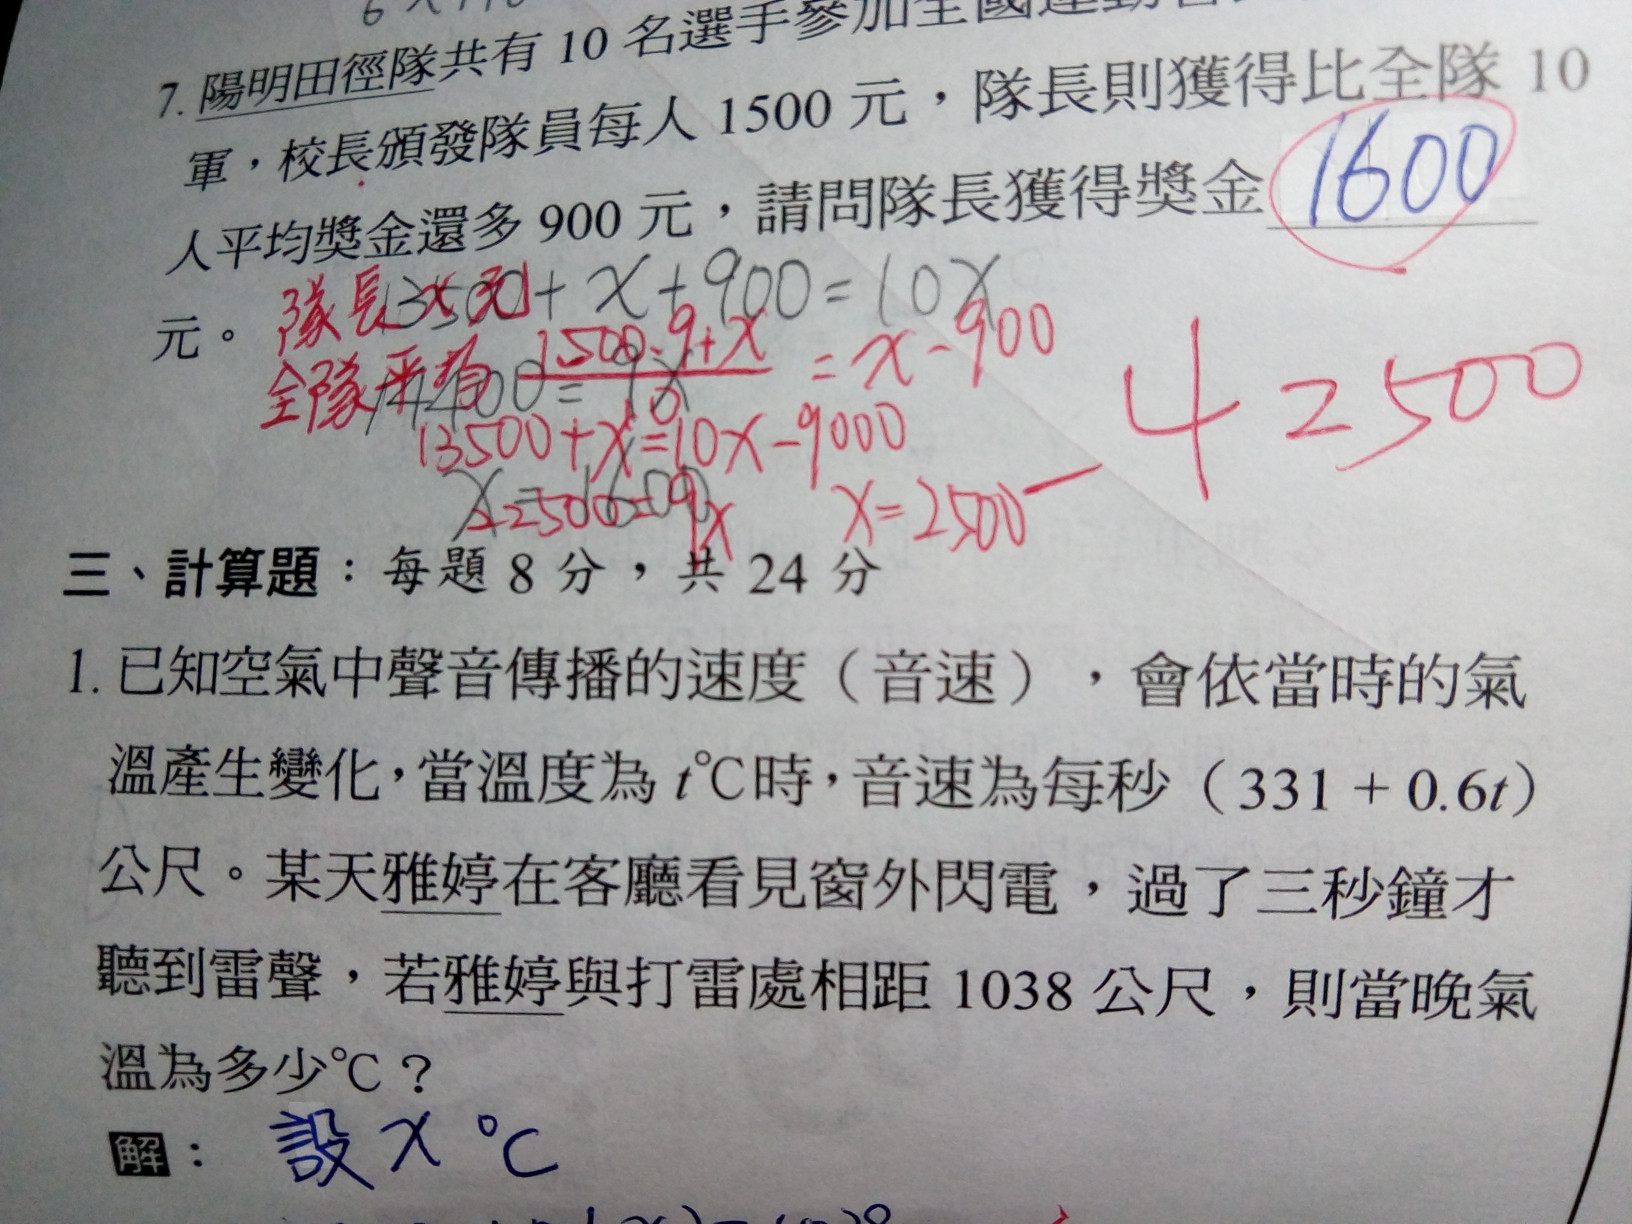 7. 陽明田徑隊共有 10 名選手參加全國運動會
軍，校長頒發隊員每人 1500 元，隊長則獲得比全隊 10
人平均獎金還多 900 元，請問隊長獲得獎金 1600
元。
13500 + x + 900 = 10x
14400 = 9x
x = 1600
隊長 x 元
全隊平均 1500·9+x / 10 = x - 900
13500 + x = 10x - 9000
22500 = 9x x = 2500
4 2500
三、計算題：每題 8 分，共 24 分
1. 已知空氣中聲音傳播的速度（音速），會依當時的氣
溫產生變化，當溫度為 t℃時，音速為每秒（331 + 0.6t）
公尺。某天雅婷在客廳看見窗外閃電，過了三秒鐘才
聽到雷聲，若雅婷與打雷處相距 1038 公尺，則當晚氣
溫為多少℃？
解： 設 x ℃